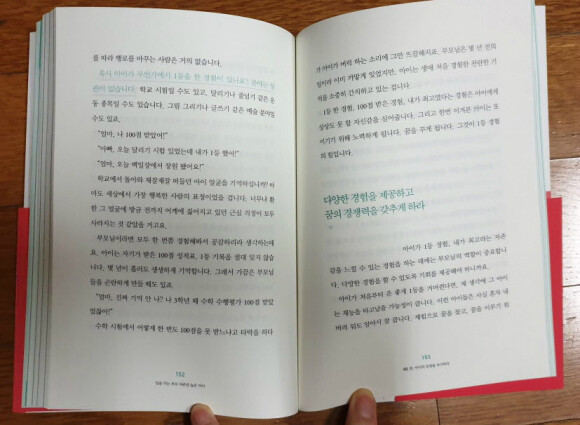 를 따라 행로를 바꾸는 사람은 거의 없습니다.
혹시 아이가 무언가에서 1등을 한 경험이 있나요? 분야는 상
관이 없습니다. 학교 시험일 수도 있고, 달리기나 줄넘기 같은 운
동 종목일 수도 있습니다. 그림 그리기나 글쓰기 같은 예술 분야일
수도 있고요.
"엄마, 나 100점 받았어!"
"아빠, 오늘 달리기 시합 있었는데 내가 1등 했어!"
"엄마, 오늘 백일장에서 장원 됐어요!"
학교에서 돌아와 재잘재잘 떠들던 아이 얼굴을 기억하십니까? 아
마도 세상에서 가장 행복한 사람의 표정이었을 겁니다. 너무나 환
한 그 얼굴에 방금 전까지 어깨에 짊어지고 있던 근심 걱정이 모두
사라지는 것 같았을 거고요.
부모님이라면 모두 한 번쯤 경험해봐서 공감하리라 생각하는데
요. 아이는 자기가 받은 100점 성적표, 1등 기록을 절대 잊지 않습
니다. 몇 년이 흘러도 생생하게 기억합니다. 그래서 가끔은 부모님
들을 곤란하게 만들 때도 있죠.
"엄마, 진짜 기억 안 나? 나 3학년 때 수학 수행평가 100점 받았
었잖아!"
수학 시험에서 어떻게 한 번도 100점을 못 받느냐고 타박을 하다
152
가 아이가 버럭 하는 소리에 그만 뜨끔해지죠. 부모님은 몇 년 전의
일이라 이미 까맣게 잊었지만, 아이는 생애 처음 경험한 찬란한 기
억을 소중히 간직하고 있는 겁니다.
1등 한 경험, 100점 받은 경험, 내가 최고였다는 경험은 아이에게
상상도 못 할 자신감을 심어줍니다. 그리고 한번 이겨본 아이는 또
이기기 위해 노력하게 됩니다. 꿈을 꾸게 됩니다. 그것이 1등 경험
의 힘입니다.
다양한 경험을 제공하고
꿈의 경쟁력을 갖추게 하라
아이가 1등 경험, 내가 최고라는 자존
감을 느낄 수 있는 경험을 하는 데에는 부모님의 역할이 중요합니
다. 다양한 경험을 할 수 있도록 기회를 제공해야 하니까요.
아이가 처음부터 운 좋게 1등을 거머쥔다면, 제 생각에 그 아이
는 재능을 타고났을 가능성이 큽니다. 이런 아이들은 사실 혼자 내
버려 둬도 알아서 잘 큽니다. 제힘으로 꿈을 찾고, 꿈을 이루기 위
153